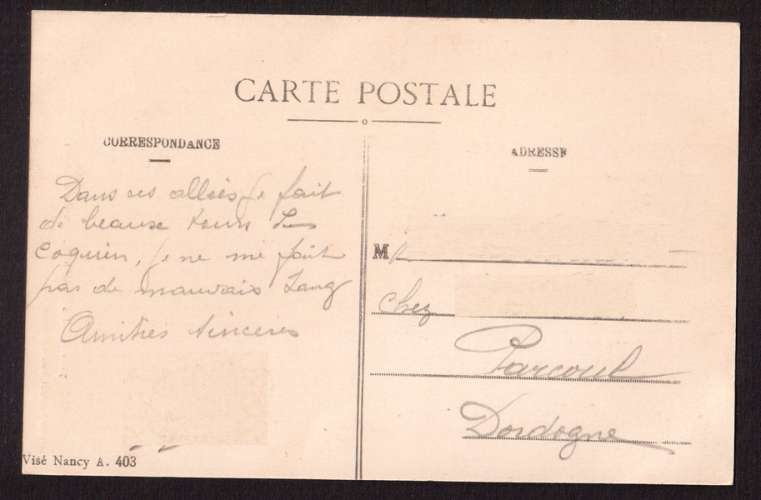 CARTE POSTALE
CORRESPONDANCE
ADRESSE
Dans ses allées je fait
de beaux tours
Coquin, je ne me fait
pas de mauvais Sang
Amitiés sincères
M
chez
Parcoul
Dordogne
Visé Nancy A. 403